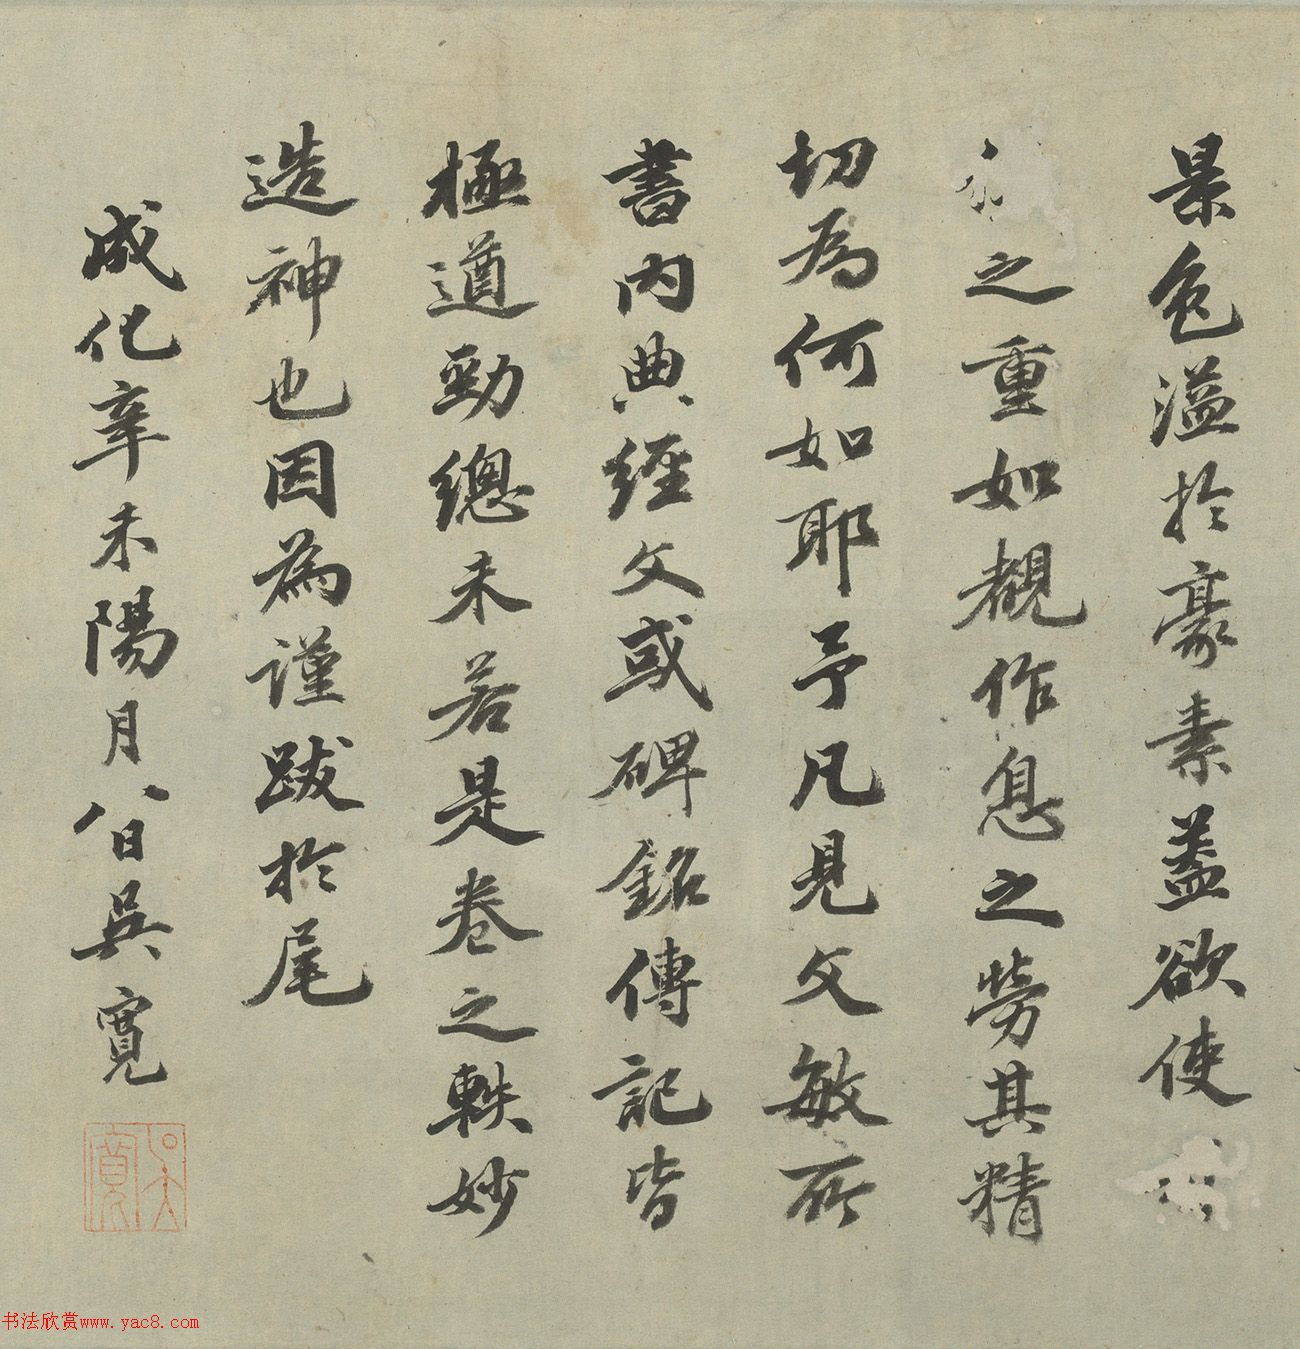 景色溢於豪素蓋欲使
之重如覩作息之勞其精
切為何如耶予凡見文敏所
書內典經文或碑銘傳記皆
極遒勁總未若是卷之軼妙
造神也因為謹跋於尾
成化辛未陽月八日吳寬
吳寬
书法欣赏www.yac8.com